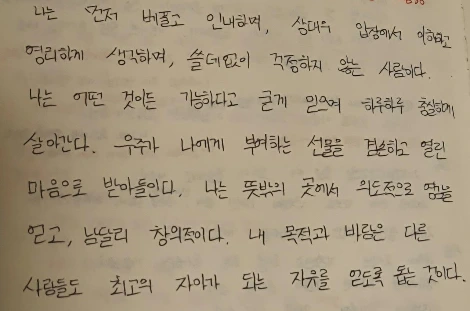 나는 먼저 베풀고 인내하며, 상대의 입장에서 이해하고
영리하게 생각하며, 쓸데없이 걱정하지 않는 사람이다.
나는 어떤 것이든 가능하다고 굳게 믿으며 하루하루 충실하게
살아간다. 우주가 나에게 부여하는 선물을 겸손하고 열린
마음으로 받아들인다. 나는 뜻밖의 곳에서 의도적으로 영감을
얻고, 남달리 창의적이다. 내 목적과 바람은 다른
사람들도 최고의 자아가 되는 자유를 얻도록 돕는 것이다.